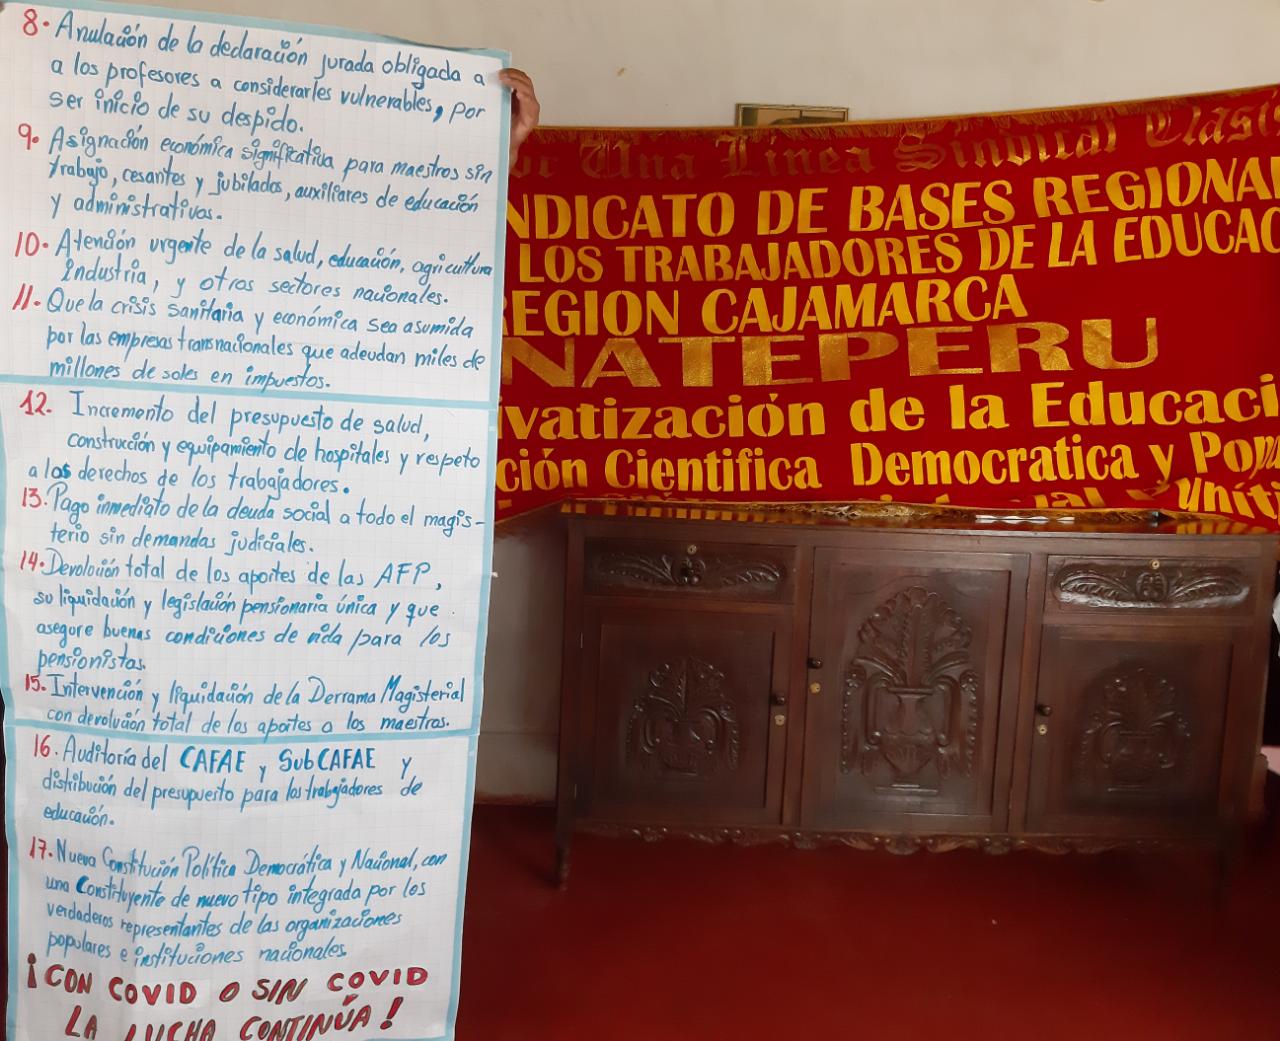 8. Anulación de la declaración jurada obligada a
a los profesores a considerarles vulnerables, por
ser inicio de su despido.
9. Asignación económica significativa para maestros sin
trabajo, cesantes y jubilados, auxiliares de educación
y administrativos.
10. Atención urgente de la salud, educación, agricultura
industria, y otros sectores nacionales.
11. Que la crisis sanitaria y económica sea asumida
por las empresas transnacionales que adeudan miles de
millones de soles en impuestos.
12. Incremento del presupuesto de salud,
construcción y equipamiento de hospitales y respeto
a los derechos de los trabajadores.
13. Pago inmediato de la deuda social a todo el magis-
terio sin demandas judiciales.
14. Devolución total de los aportes de las AFP,
su liquidación y legislación pensionaria única y que
asegore buenas condiciones de vida para los
pensionistas.
15. Intervención y liquidación de la Derrama Magisterial
con devolución total de los aportes a los maestros.
16. Auditoría del CAFAE y SubCAFAE y
distribución del presupuesto para los trabajadores de
educación.
17. Nueva Constitución Política Democrática y Nacional, con
una Constituyente de nuevo tipo integrada por los
verdaderos representantes de las organizaciones
populares e instituciones nacionales.
¡CON COVID O SIN COVID
LA LUCHA CONTINÚA!
or Una Línea Sindical Clasi
NDICATO DE BASES REGIONAL
LOS TRABAJADORES DE LA EDUCAC
REGION CAJAMARCA
NATEPERU
ivatización de la Educaci
ción Cientifica Democratica y Popu